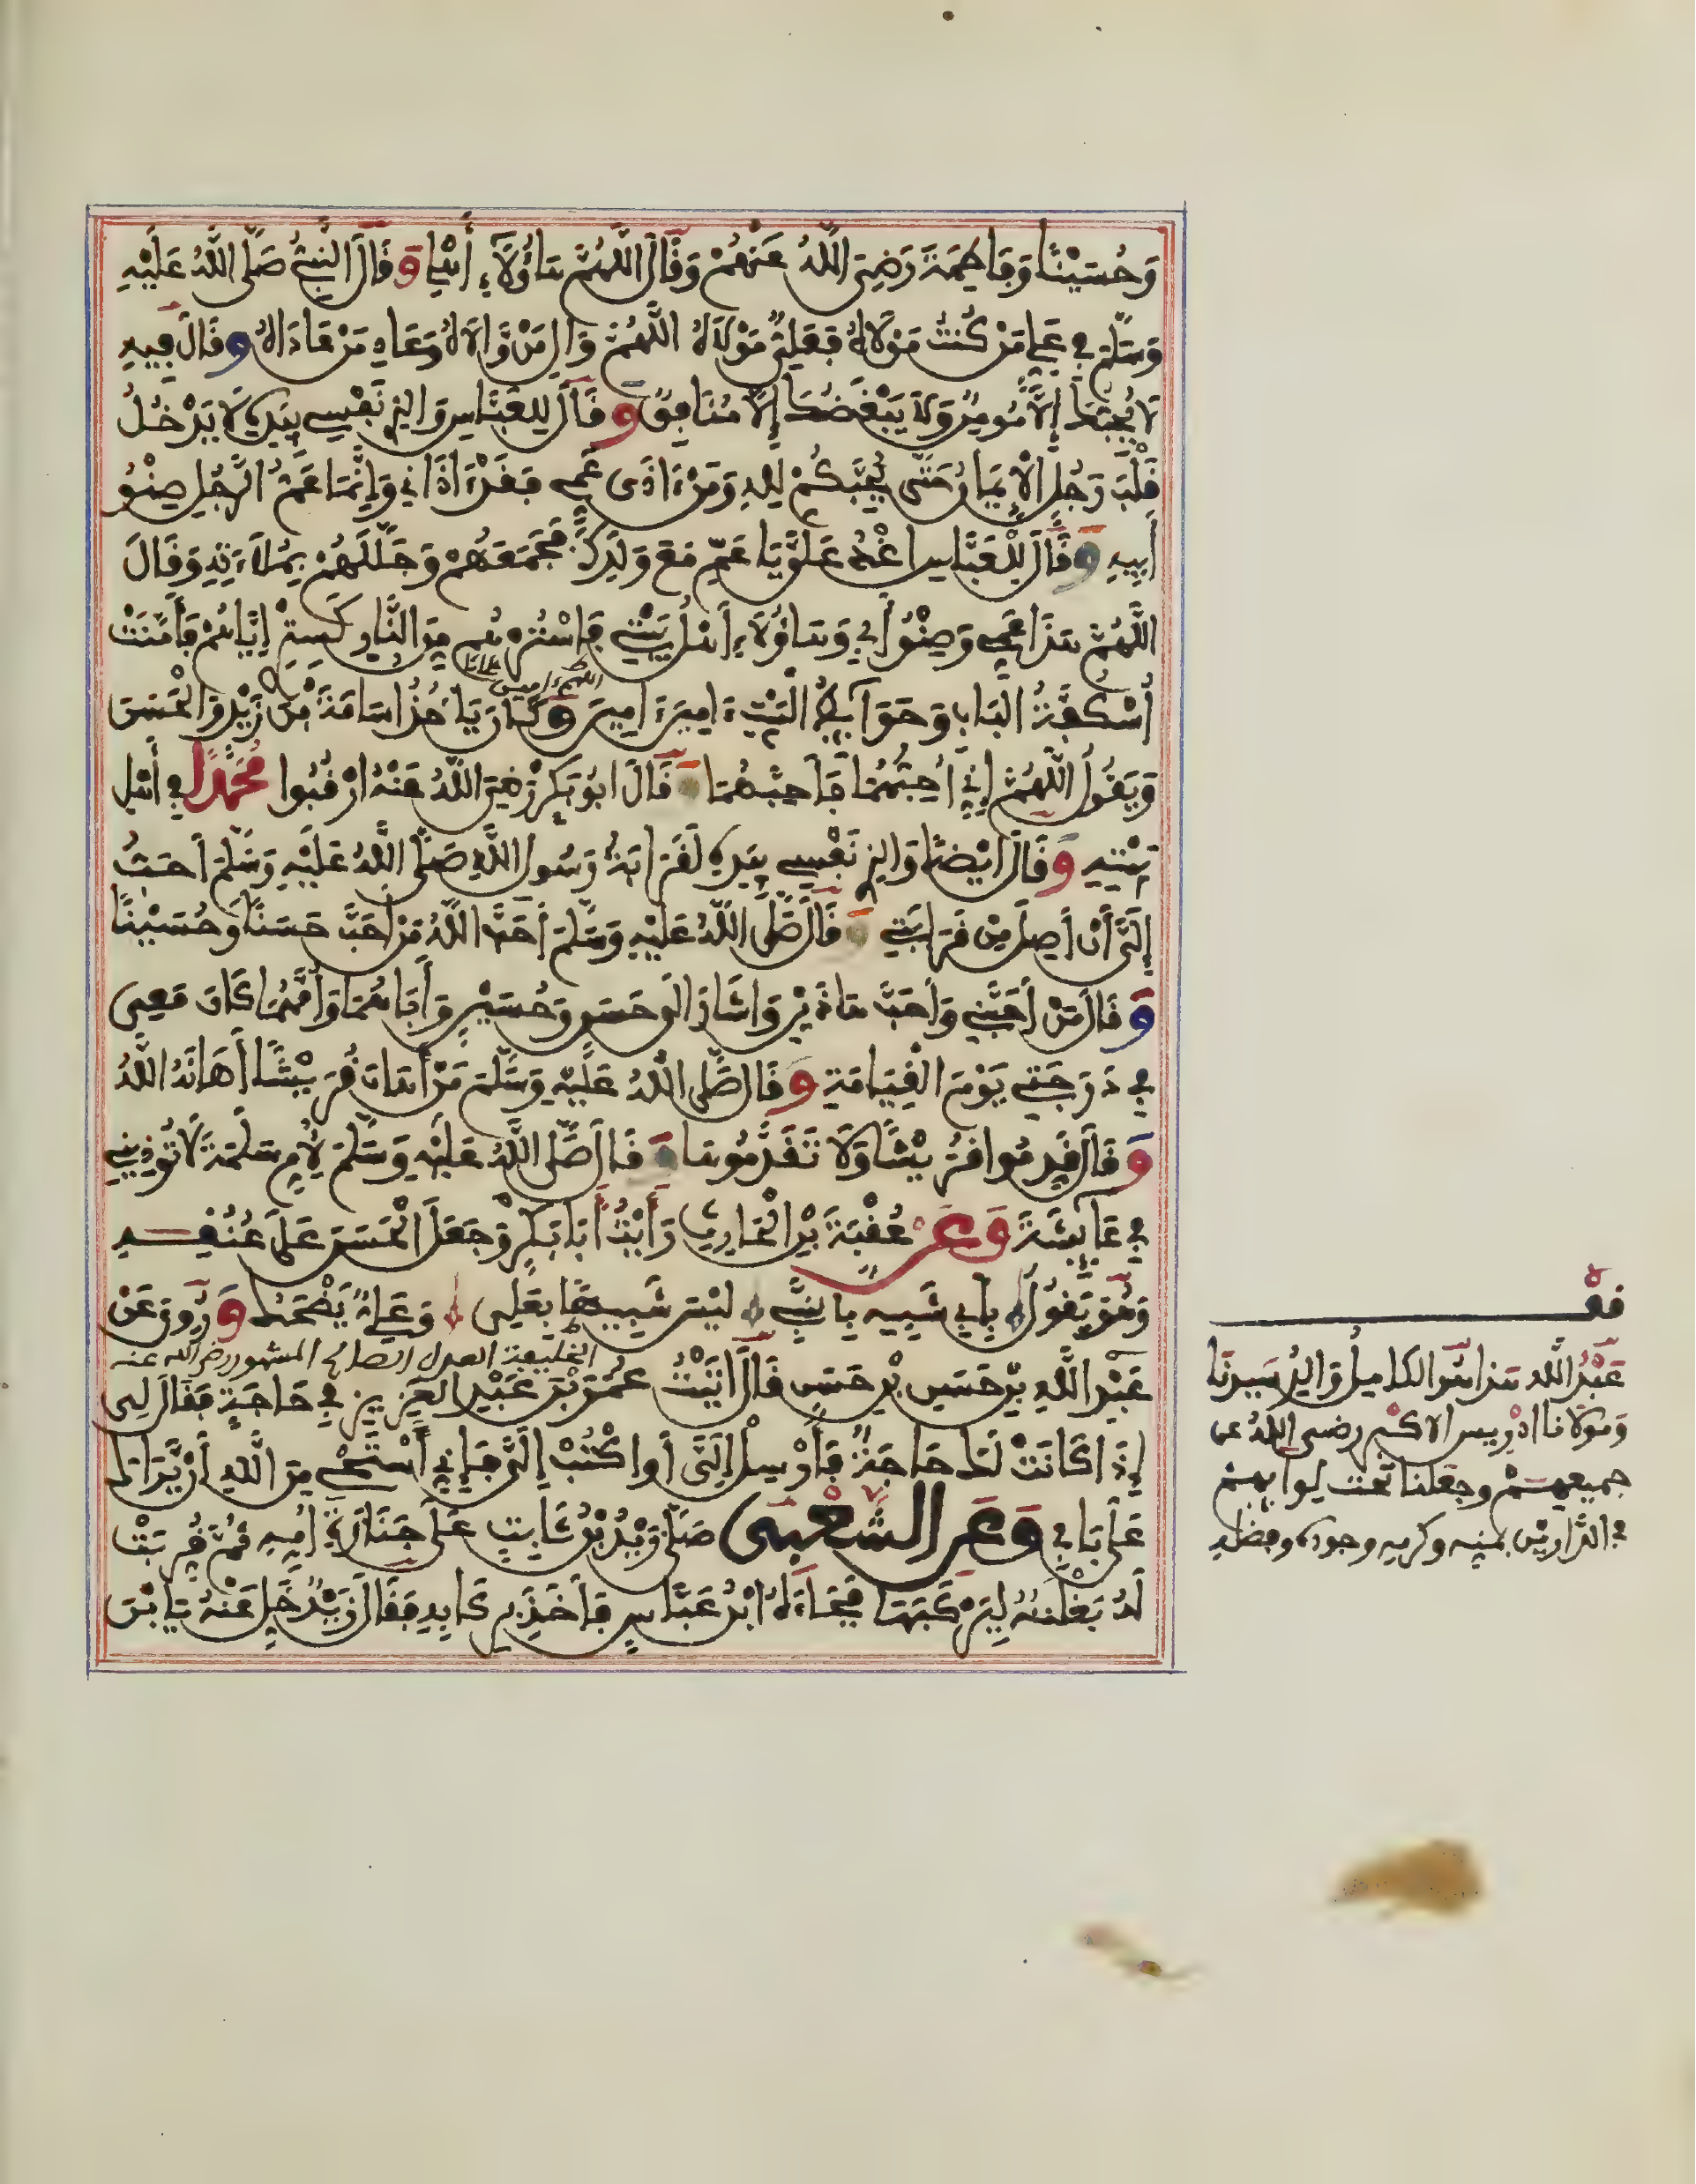 وَحُسَيْنًا وَفَاطِمَةَ رَضِيَ اللَّهُ عَنْهُمْ وَقَالَ اللَّهُمَّ هَاؤُلَاءِ أَهْلِي وَقَالَ النَّبِيُّ صَلَّى اللَّهُ عَلَيْهِ
وَسَلَّمَ فِي عَلِيٍّ مَنْ كُنْتُ مَوْلَاهُ فَعَلِيٌّ مَوْلَاهُ اللَّهُمَّ وَالِ مَنْ وَالَاهُ وَعَادِ مَنْ عَادَاهُ وَقَالَ فِيهِ
لَا يُحِبُّكَ إِلَّا مُومِنٌ وَلَا يَبْغَضُكَ إِلَّا مُنَافِقٌ وَقَالَ لِلْعَبَّاسِ وَالَّذِي نَفْسِي بِيَدِهِ لَا يَدْخُلُ
قَلْبَ رَجُلٍ الْإِيمَانُ حَتَّى يُحِبَّكُمْ لِلَّهِ وَمَنْ ءَاذَى عَمِّي فَقَدْ ءَاذَانِي وَإِنَّمَا عَمُّ الرَّجُلِ صِنْوُ
أَبِيهِ وَقَالَ لِلْعَبَّاسِ اغْدُ عَلَيَّ يَا عَمِّ مَعَ وَلَدِكَ فَجَمَعَهُمْ وَجَلَّلَهُمْ بِمُلَاءَتِهِ وَقَالَ
اللَّهُمَّ هَذَا عَمِّي وَصِنْوُ أَبِي وَهَاؤُلَاءِ أَهْلُ بَيْتِي فَاسْتُرْهُمْ مِنَ النَّارِ كَسَتْرِي إِيَّاهُمْ فَأَمَّنَتْ
اللهم ءامين
أُسْكُفَّةُ الْبَابِ وَحَوَائِطُ الْبَيْتِ ءَامِينَ ءَامِينَ وَكَانَ يَاخُذُ أُسَامَةَ بْنَ زَيْدٍ وَالْحَسَنَ
وَيَقُولُ اللَّهُمَّ إِنِّي أُحِبُّهُمَا فَأَحِبَّهُمَا وَقَالَ أَبُو بَكْرٍ رَضِيَ اللَّهُ عَنْهُ ارْقُبُوا مُحَمَّدًا فِي أَهْلِ
بَيْتِهِ وَقَالَ أَيْضًا وَالَّذِي نَفْسِي بِيَدِهِ لَقَرَابَةُ رَسُولِ اللَّهِ صَلَّى اللَّهُ عَلَيْهِ وَسَلَّمَ أَحَبُّ
إِلَيَّ أَنْ أَصِلَ مِنْ قَرَابَتِي وَقَالَ صَلَّى اللَّهُ عَلَيْهِ وَسَلَّمَ أَحَبَّ اللَّهُ مَنْ أَحَبَّ حَسَنًا وَحُسَيْنًا
وَقَالَ مَنْ أَحَبَّنِي وَأَحَبَّ هَاذَيْنِ وَأَشَارَ إِلَى حَسَنٍ وَحُسَيْنٍ وَأَبَاهُمَا وَأُمَّهُمَا كَانَ مَعِي
فِي دَرَجَتِي يَوْمَ الْقِيَامَةِ وَقَالَ صَلَّى اللَّهُ عَلَيْهِ وَسَلَّمَ مَنْ أَهَانَ قُرَيْشًا أَهَانَهُ اللَّهُ
وَقَالَ قَدِّمُوا قُرَيْشًا وَلَا تَقَدَّمُوهَا وَقَالَ صَلَّى اللَّهُ عَلَيْهِ وَسَلَّمَ لِأُمِّ سَلَمَةَ لَا تُوذِينِي
فِي عَائِشَةَ وَعَنْ عُقْبَةَ بْنِ الْحَارِثِ رَأَيْتُ أَبَا بَكْرٍ وَجَعَلَ الْحَسَنَ عَلَى عُنُقِهِ
وَهُوَ يَقُولُ بِأَبِي شَبِيهٌ بِالنَّبِي لَيْسَ شَبِيهًا بِعَلِي وَعَلِيٌّ يَضْحَكُ وَرُوِيَ عَنْ
الخليفة العدل الصالح المشهور رضي الله عنه
عَبْدِ اللَّهِ بْنِ حَسَنِ بْنِ حَسَنٍ قَالَ أَتَيْتُ عُمَرَ بْنَ عَبْدِ الْعَزِيزِ فِي حَاجَةٍ فَقَالَ لِي
إِذَا كَانَتْ لَكَ حَاجَةٌ فَأَرْسِلْ إِلَيَّ أَوِ اكْتُبْ إِلَيَّ فَإِنِّي أَسْتَحْيِي مِنَ اللَّهِ أَنْ يَرَاكَ
عَلَى بَابِي وَعَنِ الشَّعْبِي صَلَّى زَيْدُ بْنُ ثَابِتٍ عَلَى جَنَازَةِ أُمِّهِ ثُمَّ قُرِّبَتْ
لَهُ بَغْلَتُهُ لِيَرْكَبَهَا فَجَاءَهُ ابْنُ عَبَّاسٍ فَأَخَذَ بِرِكَابِهِ فَقَالَ زَيْدٌ خَلِّ عَنْهُ يَا ابْنَ
قف
عَبْدُ اللَّه هَذا هُوَ الكامِلُ وَالِدُ سَيِّدِنَا
وَمَوْلَانَا ادْرِيس الاكْبَر رضي اللهُ عن
جميعهمْ وجعلنا تحت لوائهمْ
في الدَّارين بمنِّه وكرمِه وجودِه وفضلِه